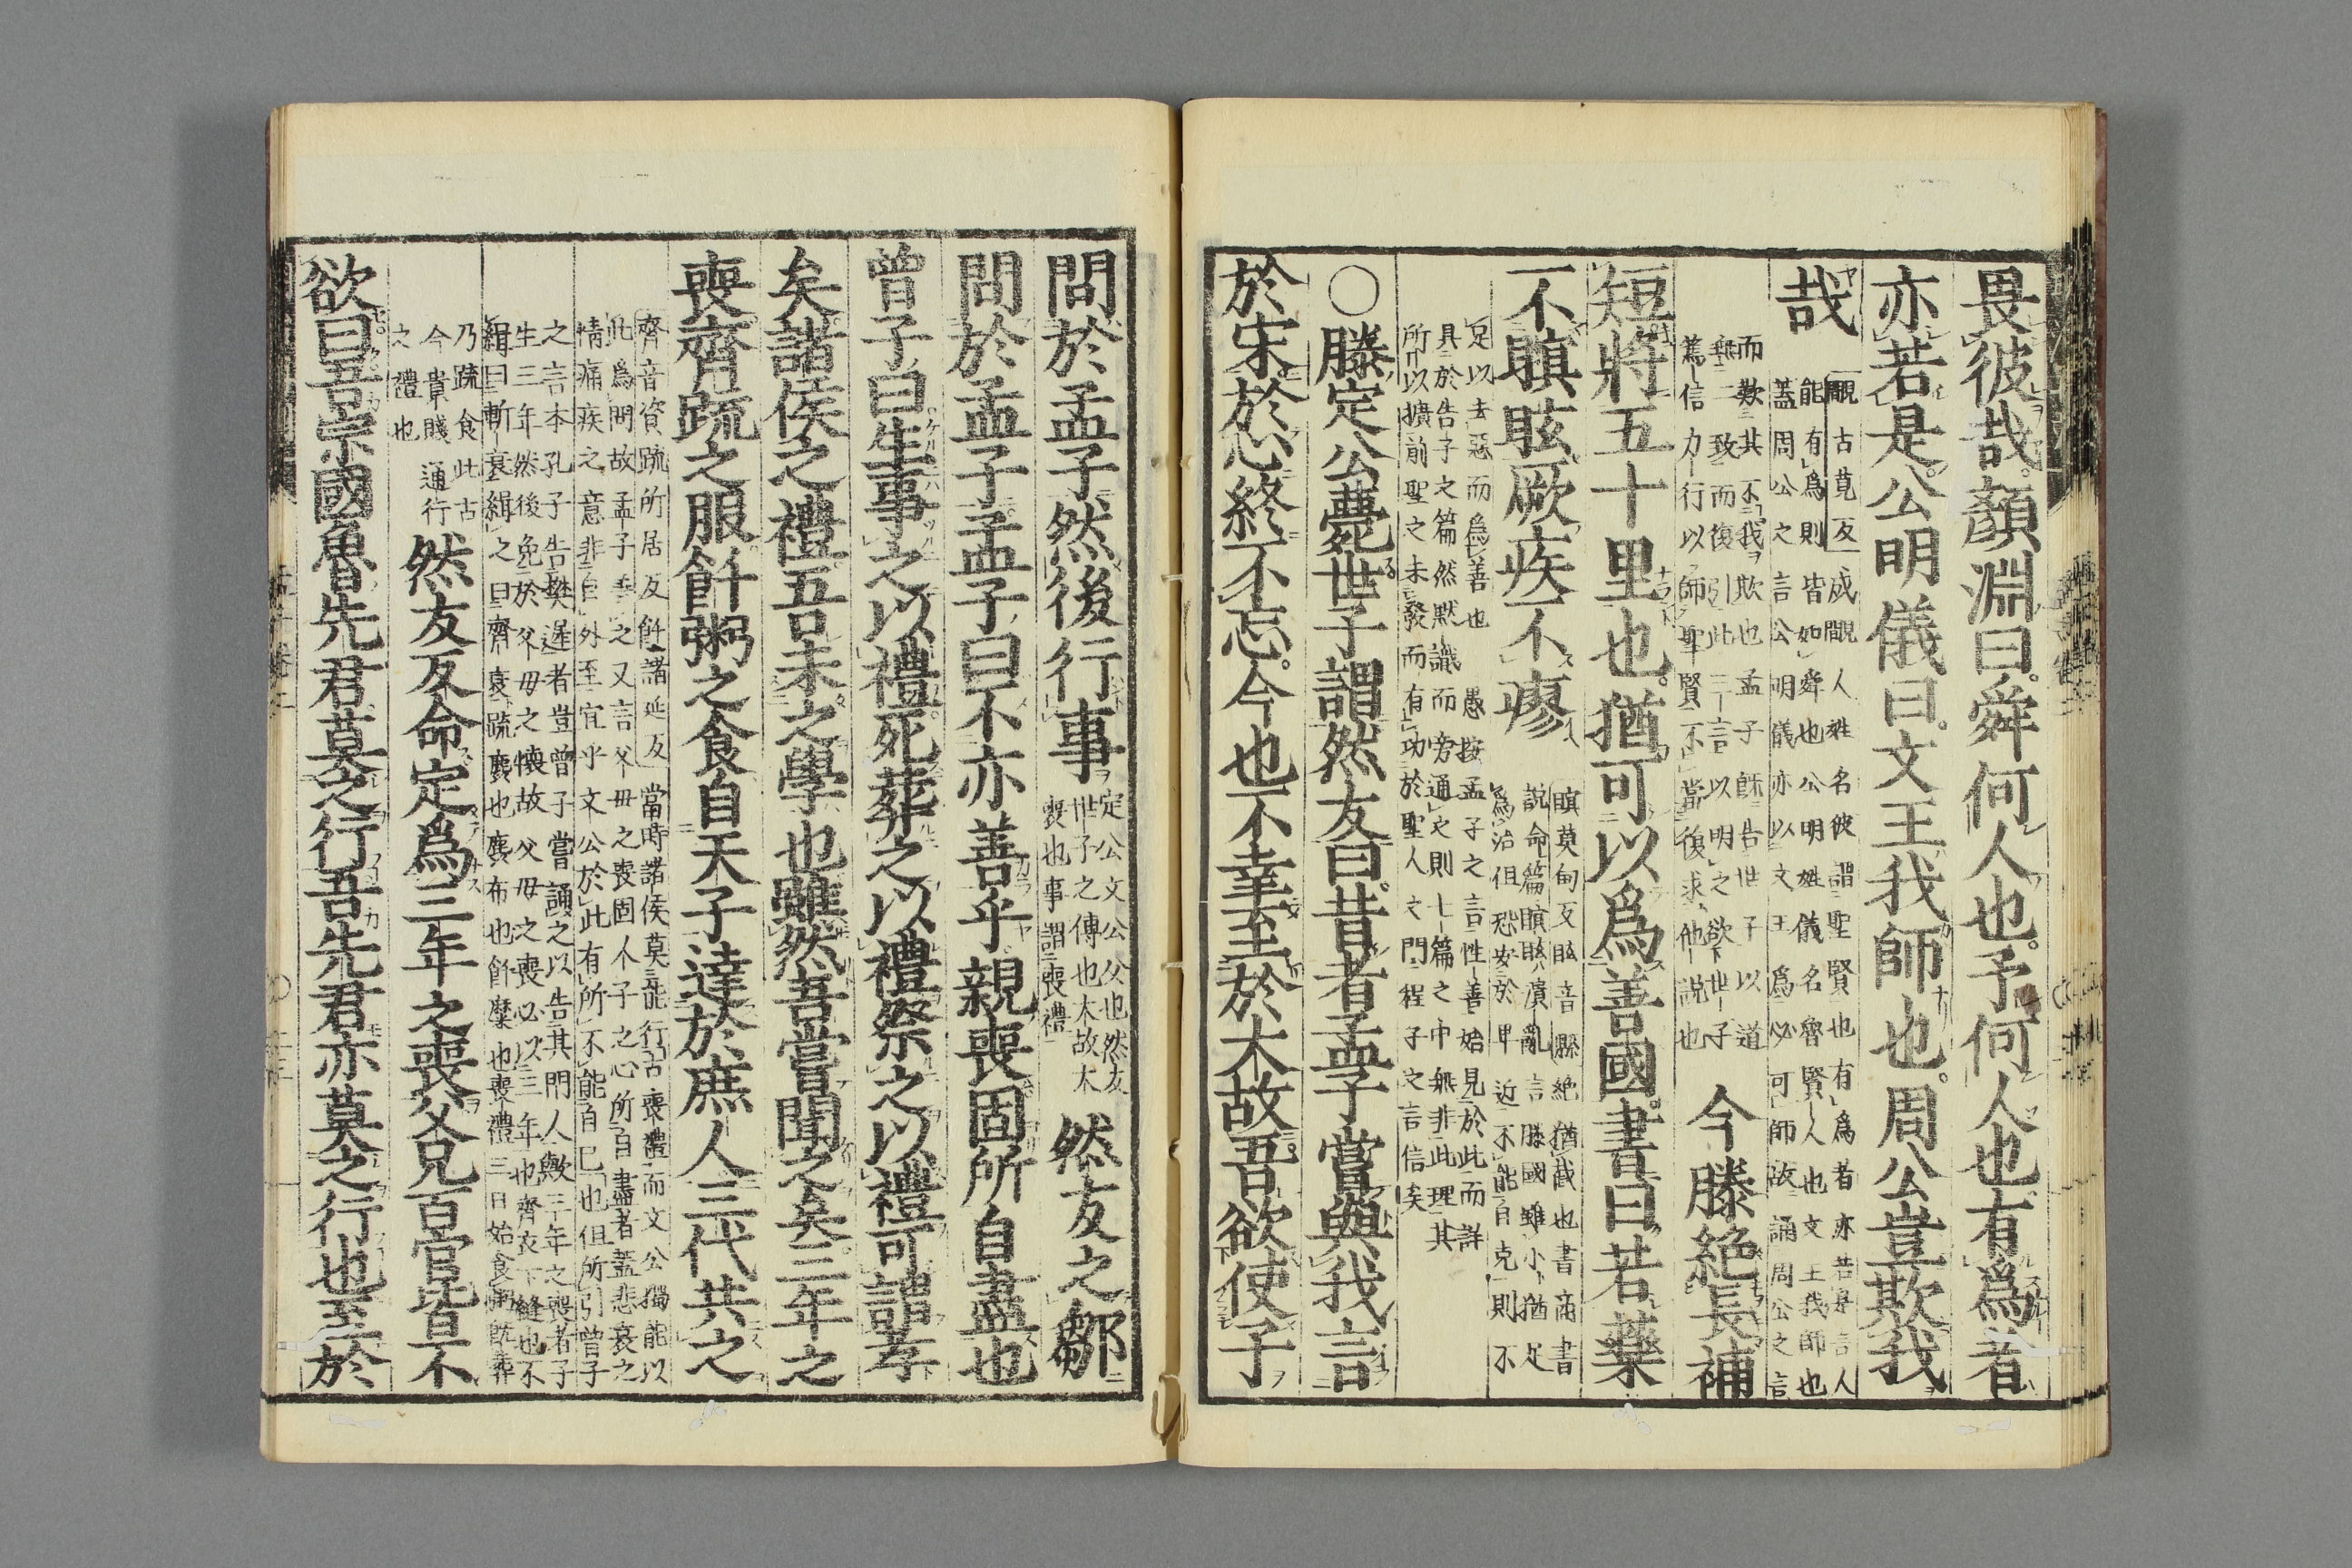 畏彼哉顏淵曰舜何人也予何人也有爲者
亦若是公明儀曰文王我師也周公豈欺我
哉
覸古莧反 成覸人姓名彼謂聖賢也有爲者亦若是言人
能有爲則皆如舜也公明姓儀名魯賢人也文王我師也
蓋周公之言公明儀亦以文王爲必可師故誦周公之言
而歎其不我欺也孟子既告世子以道
無二致而復引此三言以明之欲世子
篤信力行以師聖賢不當復求他說也
今滕絶長補
短將五十里也猶可以爲善國書曰若藥
不瞑眩厥疾不瘳
瞑莫甸反眩音縣 絶猶截也書商書
說命篇瞑眩憒亂言滕國雖小猶足
爲治但恐安於卑近不能自克則不
足以去惡而爲善也 愚按孟子之言性善始見於此而詳
具於告子之篇然默識而旁通之則七篇之中無非此理其
所以擴前聖之未發而有功於聖人之門程子之言信矣
○滕定公薨世子謂然友曰昔者孟子嘗與我言
於宋於心終不忘今也不幸至於大故吾欲使子
問於孟子然後行事
定公文公父也然友
世子之傅也大故大
喪也事謂喪禮
然友之鄒
問於孟子孟子曰不亦善乎親喪固所自盡也
曾子曰生事之以禮死葬之以禮祭之以禮可謂孝
矣諸侯之禮吾未之學也雖然吾嘗聞之矣三年之
喪齊疏之服飦粥之食自天子達於庶人三代共之
齊音資疏所居反飦諸延反 當時諸侯莫能行古喪禮而文公獨能以
此爲問故孟子善之又言父母之喪固人子之心所自盡者蓋悲哀之
情痛疾之意非自外至宜乎文公於此有所不能自已也但所引曾子
之言本孔子告樊遲者豈曾子嘗誦之以告其門人歟三年之喪者子
生三年然後免於父母之懷故父母之喪必以三年也齊衣下縫也不
緝曰斬衰緝之曰齊衰疏麤也麤布也飦糜也喪禮三日始食粥既葬
乃疏食此古
今貴賤通行
之禮也
然友反命定爲三年之喪父兄百官皆不
欲曰吾宗國魯先君莫之行吾先君亦莫之行也至於